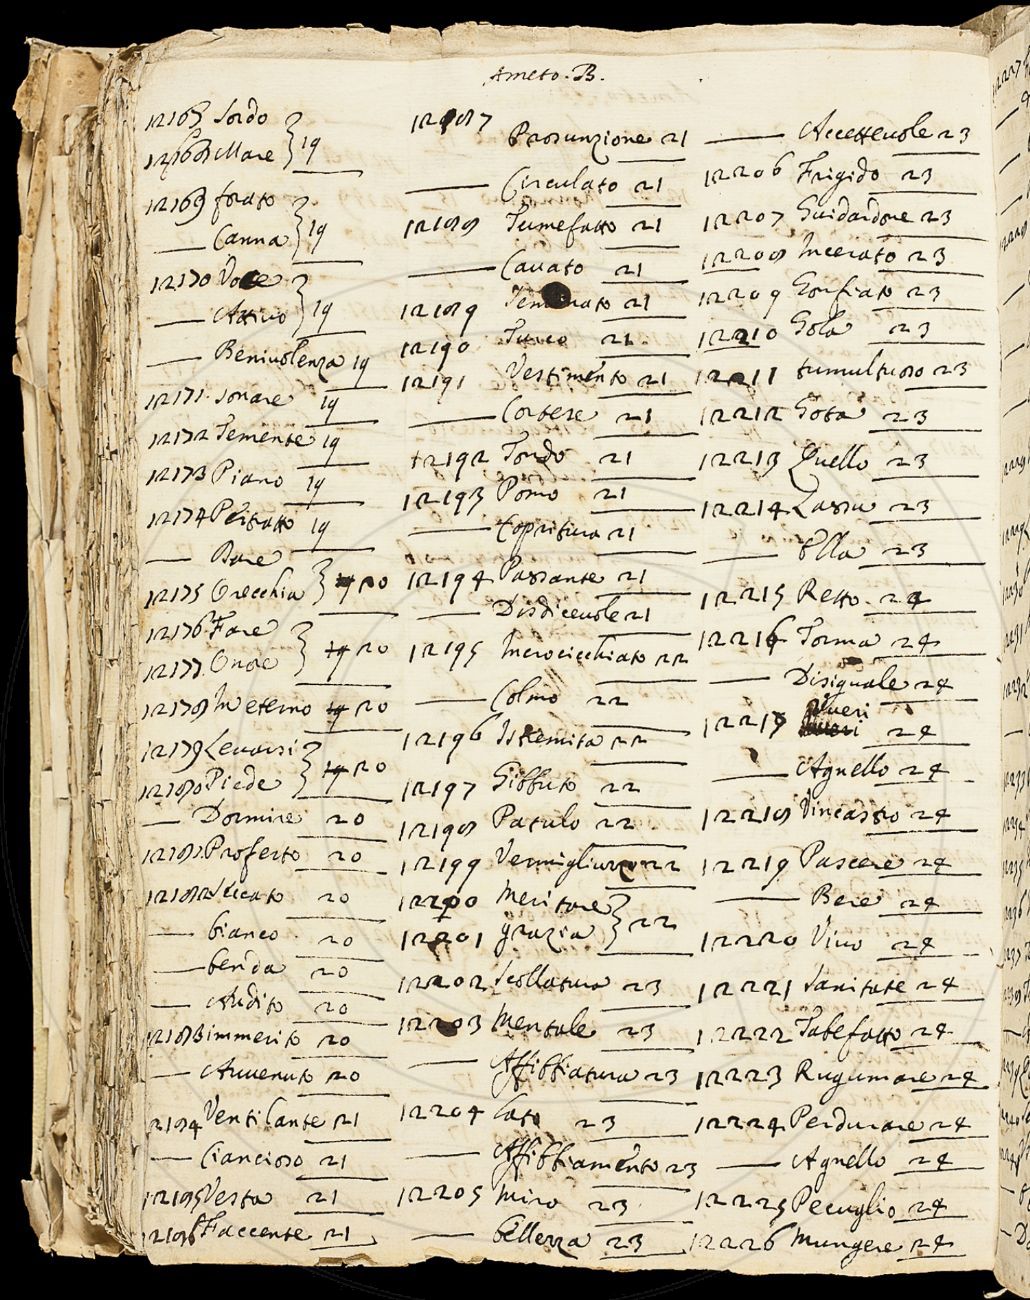 Ameto. B.
12165 Sordo
12168 Mare } 19
12169 forato
— Canna } 19
12170 Voce
— Attivo } 19
— Benivolenza 19
12171 Sonare 19
12172 Temente 19
12173 Piano 19
12174 Peitatto 19
— Bare
12175 Orecchia } 20
12176 Fare
12177 Onore } 20
12178 In eterno 20
12179 Levarsi
12180 Piede } 20
— Dormire 20
12181 Proferto 20
12182 Seccato 20
— bianco 20
— benda 20
— Audito 20
12183 immerito 20
— Avvenuto 20
2184 Ventilante 21
— Ciancioso 21
12185 Vesta 21
2186 Faccente 21
12187
Prosunzione 21
— Circulato 21
12188 Tumefatto 21
— Cavato 21
12189 21
12190 21
12191 Vestimento 21
— Cortese 21
12192 Tondo 21
12193 Pomo 21
— Copritura 21
12194 Passante 21
— Disdicevole 21
12195 Incrocicchiato 22
— Colmo 22
12196 Istremita 22
12197 Gibbuto 22
12198 Patulo 22
12199 Vermigliuzzo 22
12200 Meritare
12201 grazia } 22
12202 Scollatura 23
12203 Mentale 23
— Affibbiatura 23
12204 Lato 23
— Affibbiamento 23
12205 Miro 23
— bellezza 23
— Accettevole 23
12206 Frigido 23
12207 Guidardone 23
12208 Incerato 23
12209 Gonfiato 23
12210 Gola 23
12211 tumultuoso 23
12212 Gota 23
12213 Quello 23
12214 Lassu 23
— Ella 23
12215 Retto 24
12216 Torma 24
— Disiguale 24
12217 Iveri 24
— Agnello 24
12218 Vincastro 24
12219 Pascere 24
— Bere 24
12220 Vivo 24
12221 Sanitate 24
12222 Tabefatto 24
12223 Rugumare 24
12224 Perdurare 24
— Agnello 24
12225 Peculio 24
12226 Mungere 24